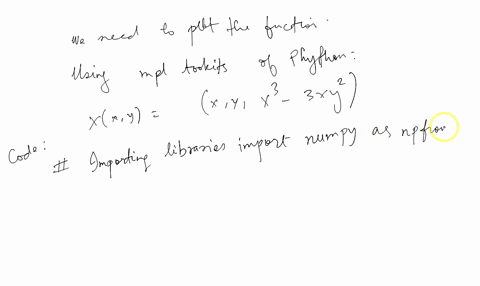 We need to plot the function.
Using mpl tookits of Phython:
X(x,y) = (x, y, x³ - 3xy²)
Code:
# Importing libraries import numpy as npfrom